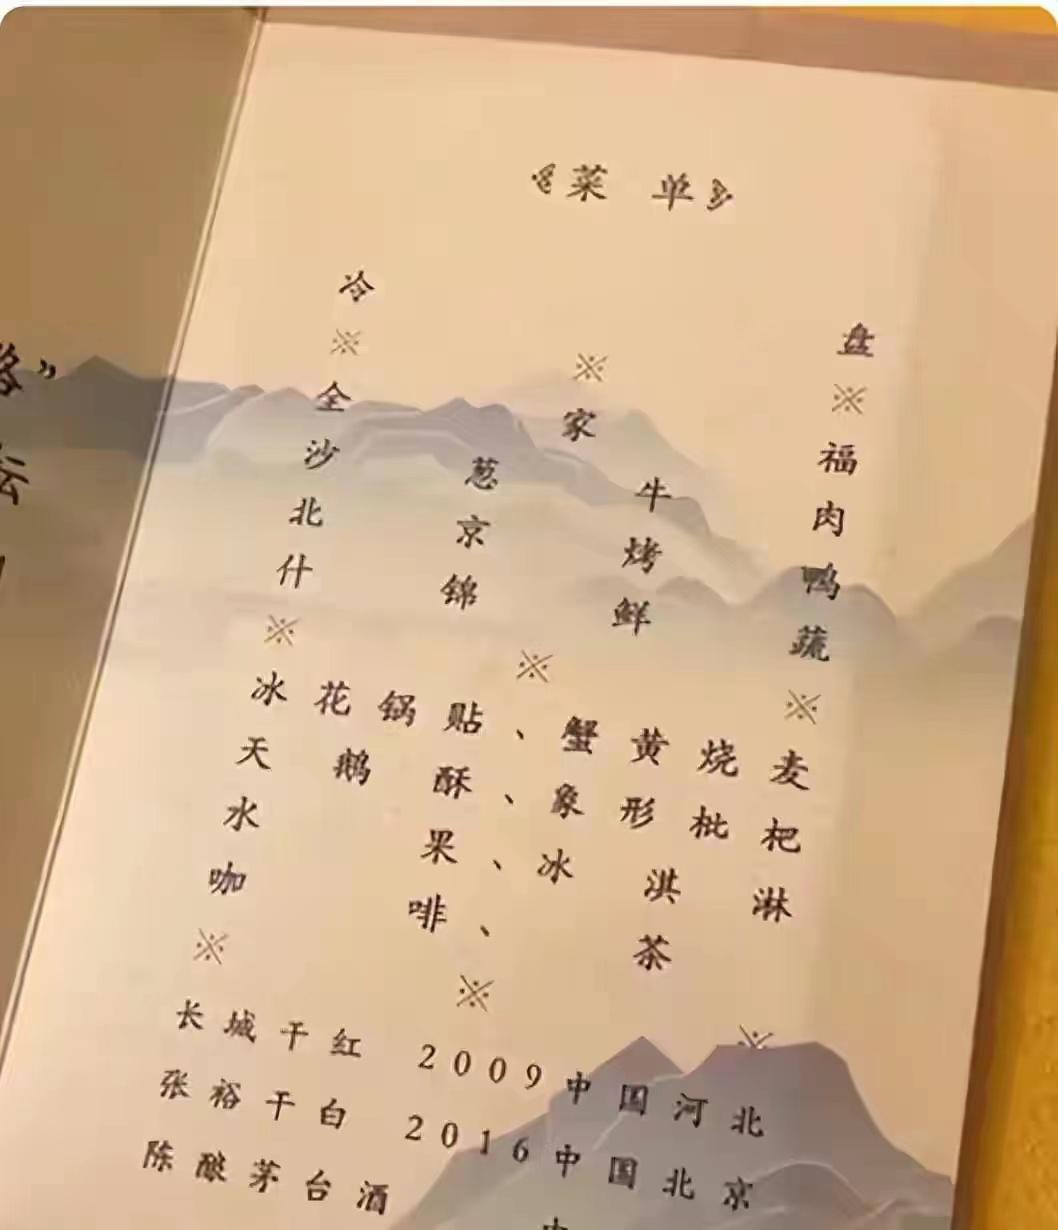 《菜 单》
冷 盘
※ ※ ※
全 家 福
沙 葱 牛 肉
北 京 烤 鸭
什 锦 鲜 蔬
※ ※ ※
冰 花 锅 贴 、 蟹 黄 烧 麦
天 鹅 酥 、 象 形 枇 杷
水 果 、 冰 淇 淋
咖 啡 、 茶
※ ※ ※
长 城 干 红 2009 中 国 河 北
张 裕 干 白 2016 中 国 北 京
陈 酿 茅 台 酒